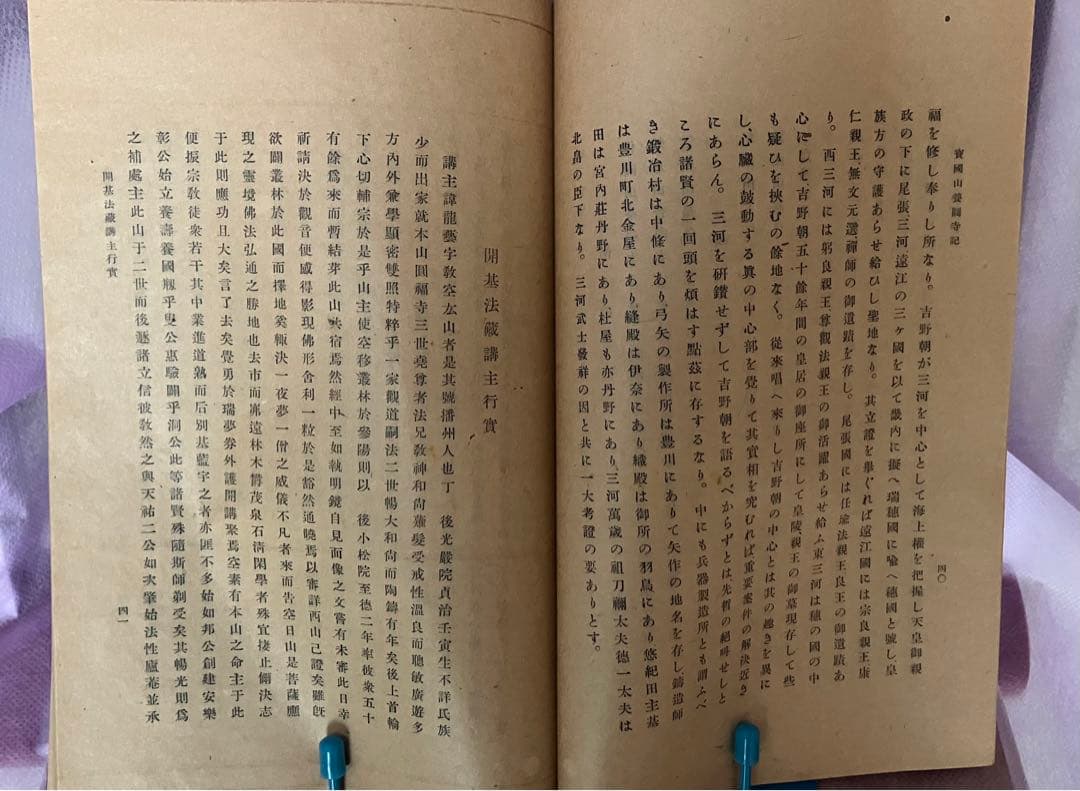 寶國山養國寺記
四〇
福を修し奉りし所なり。吉野朝が三河を中心として海上權を把握し天皇御親
政の下に尾張三河遠江の三ヶ國を以て畿内に擬へ瑞穗國に喩へ穗國と號し皇
族方の守護あらせ給ひし聖地なり。其立證を擧ぐれば遠江國には宗良親王康
仁親王、無文元選禪師の御遺蹟を存し。尾張國には任瑜法親王良王の御遺蹟あ
り。西三河には躬良親王尊觀法親王の御活躍あらせ給ふ東三河は穗の國の中
心にして吉野朝五十餘年間の皇居の御座所にして皇陵親王の御墓現存して些
も疑ひを挾むの餘地なく。從來唱へ來りし吉野朝の中心とは其の趣きを異に
し、心臟の鼓動する眞の中心部を覺りて其實相を究むれば重要案件の解決近き
にあらん。三河を硏鑽せずして吉野朝を語るべからずとは先哲の絕叫せしと
ころ諸賢の一回頭を煩はす點茲に存するなり。中にも兵器製造所とも謂ふべ
き鍛冶村は中條にあり、弓矢の製作所は豊川にありて矢作の地名を存し、鑄造師
は豊川町北金屋にあり、縫殿は伊奈にあり織殿は御所の羽鳥にあり悠紀田主基
田は宮内莊丹野にあり社屋も亦丹野にあり、三河萬歲の祖刀禰太夫德一太夫は
北畠の臣下なり。三河武士發祥の因と共に一大考證の要ありとす。
開基法藏講主行實
講主諱龍藝字敎空左山者是其號播州人也丁　後光嚴院貞治壬寅生不詳氏族
少而出家就本山圓福寺三世堯尊者法兄敎神和尙薙髮受戒性溫良而聰敏廣遊多
方內外兼學顯密雙照特粹乎一家觀道嗣法二世暢大和尙而陶鑄有年矣後上首輪
下心切輔宗於是乎山主使空移叢林於參陽則以　後小松院至德二年率彼衆五十
有餘爲來而暫結芽此山共宿焉然經中至如執明鏡自見面像之文嘗有未審此日幸
祈請決於觀音便感得影現佛形舍利一粒於是豁然通曉焉以審詳西山己證矣雖旣
欲闢叢林於此國而擇地奚輙決一夜夢一僧之威儀不凡者來而告空曰山是菩薩應
現之靈境佛法弘通之勝地也去市而邪遠林木欝茂泉石淸閑學者殊宜捿止僧決志
于此則應功且大矣言了去矣覺勇於瑞夢券外護開講聚焉空素有本山之命主于此
便振宗敎徒衆若干其中業進道熟而后別基藍宇之者亦匪不多始如邦公創建安樂
彰公始立養壽養國剏乎叟公惠驗闢乎洞公此等諸賢殊隨斯師剃受矣其暢光則爲
之補處主此山于二世而後遷諸立信彼敎然之與天祐二公如次肇始法性廬菴並承
開基法藏講主行實
四一